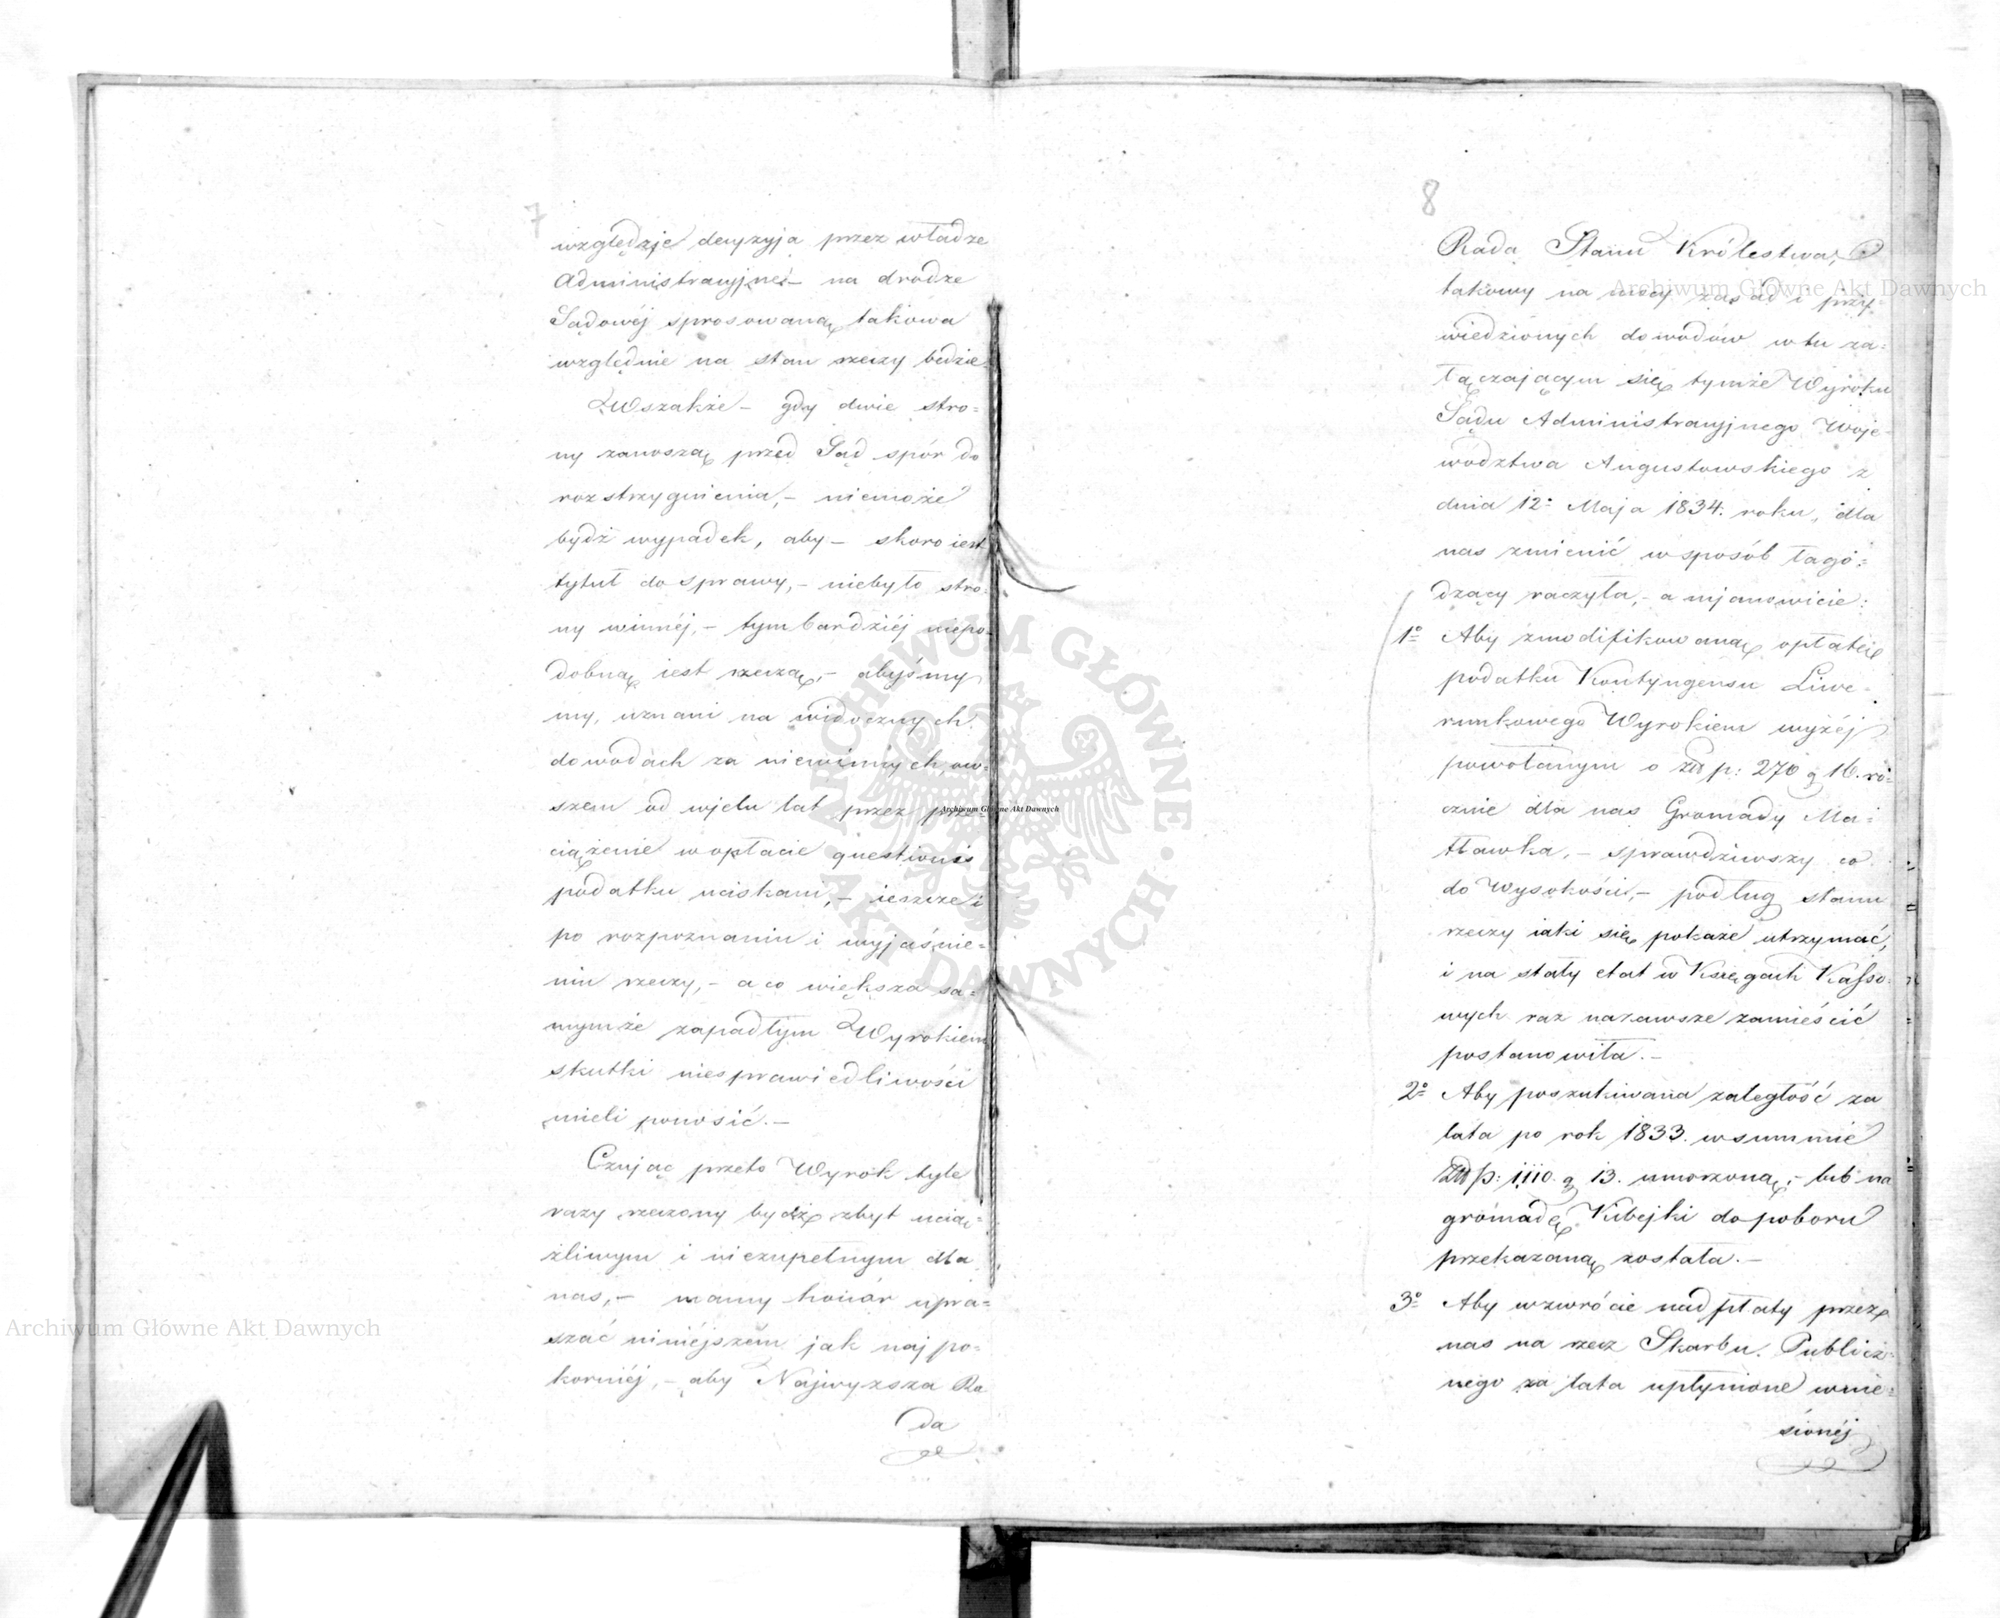 7
względzie decyzyja przez władze
Administracyjne – na drodze
Sądowéj sprosowaną takowa
względnie na stan rzeczy będzie
Wszakże – gdy dwie stro=
ny zanoszą przed Sąd spór do
rozstrzygnienia, – niemoże
bydź wypadek, aby – skoro iest
tytuł do sprawy, – niebyło stro=
ny winnéj, – tym bardziéj niepo=
dobną iest rzeczą, – abyśmy
my, uznani na widocznych
dowodach za niewinnych, ow=
szem od wielu lat przez prze=
ciążenie w opłacie questionis
podatku uciskani, – ieszcze i
po rozpoznaniu i wyjaśnie=
niu rzeczy, – a co większa sa=
mymże zapadłym Wyrokiem
skutki niesprawiedliwości
mieli ponosić. –
Czując przeto Wyrok tyle
razy rzeczony bydź zbyt ucią=
żliwym i niezupełnym dla
nas, – mamy honór upra=
szać niniéjszém jak najpo=
korniéj, – aby Najwyższa Ra
da
8
Rada Stanu Królestwa,
takowy na mocy zasad i przy=
wiedzionych dowodów w tu za=
łączającym się tymże Wyroku
Sądu Administracyjnego Woje=
wództwa Augustowskiego z
dnia 12º Maja 1834. roku, dla
nas zmienić w sposób łago=
dzący raczyła, – a mianowicie:
1º Aby zmodifikowaną opłatę
podatku Kontyngensu Liwe=
runkowego Wyrokiem wyżéj
powołanym o Złp: 270 g 16. ro=
cznie dla nas Gromady Ma=
tławka, – sprawdziwszy co
do Wysokości, – podług stanu
rzeczy iaki się pokaże utrzymać,
i na stały etat w Księgach Kasso=
wych raz nazawsze zamieścić
postanowiła. –
2º Aby poszukiwana zaległość za
lata po rok 1833. w summie
Złp: 1,110. g 13. umorzoną, – lub na
gromadę Kubejki do poboru
przekazaną została. –
3º Aby wzwrócie nadpłaty przez
nas na rzecz Skarbu Publicz=
nego za lata upłynione wnie=
sionéj
Archiwum Główne Akt Dawnych
Archiwum Główne Akt Dawnych
Archiwum Główne Akt Dawnych
ARCHIWUM GŁÓWNE · AKT DAWNYCH ·